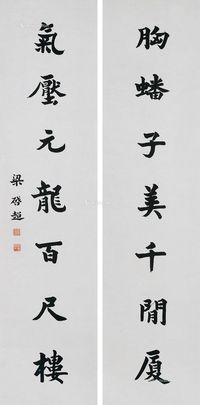 胸蟠子美千閒厦
氣壓元龍百尺樓
梁啓超